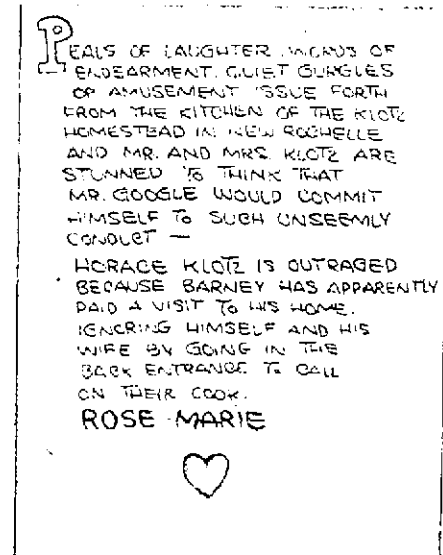 PEALS OF LAUGHTER, WORDS OF
ENDEARMENT, QUIET GURGLES
OF AMUSEMENT ISSUE FORTH
FROM THE KITCHEN OF THE KLOTZ
HOMESTEAD IN NEW ROCHELLE
AND MR. AND MRS. KLOTZ ARE
STUNNED TO THINK THAT
MR. GOOGLE WOULD COMMIT
HIMSELF TO SUCH UNSEEMLY
CONDUCT —
HORACE KLOTZ IS OUTRAGED
BECAUSE BARNEY HAS APPARENTLY
PAID A VISIT TO HIS HOME.
IGNORING HIMSELF AND HIS
WIFE BY GOING IN THE
BACK ENTRANCE TO CALL
ON THEIR COOK.
ROSE MARIE